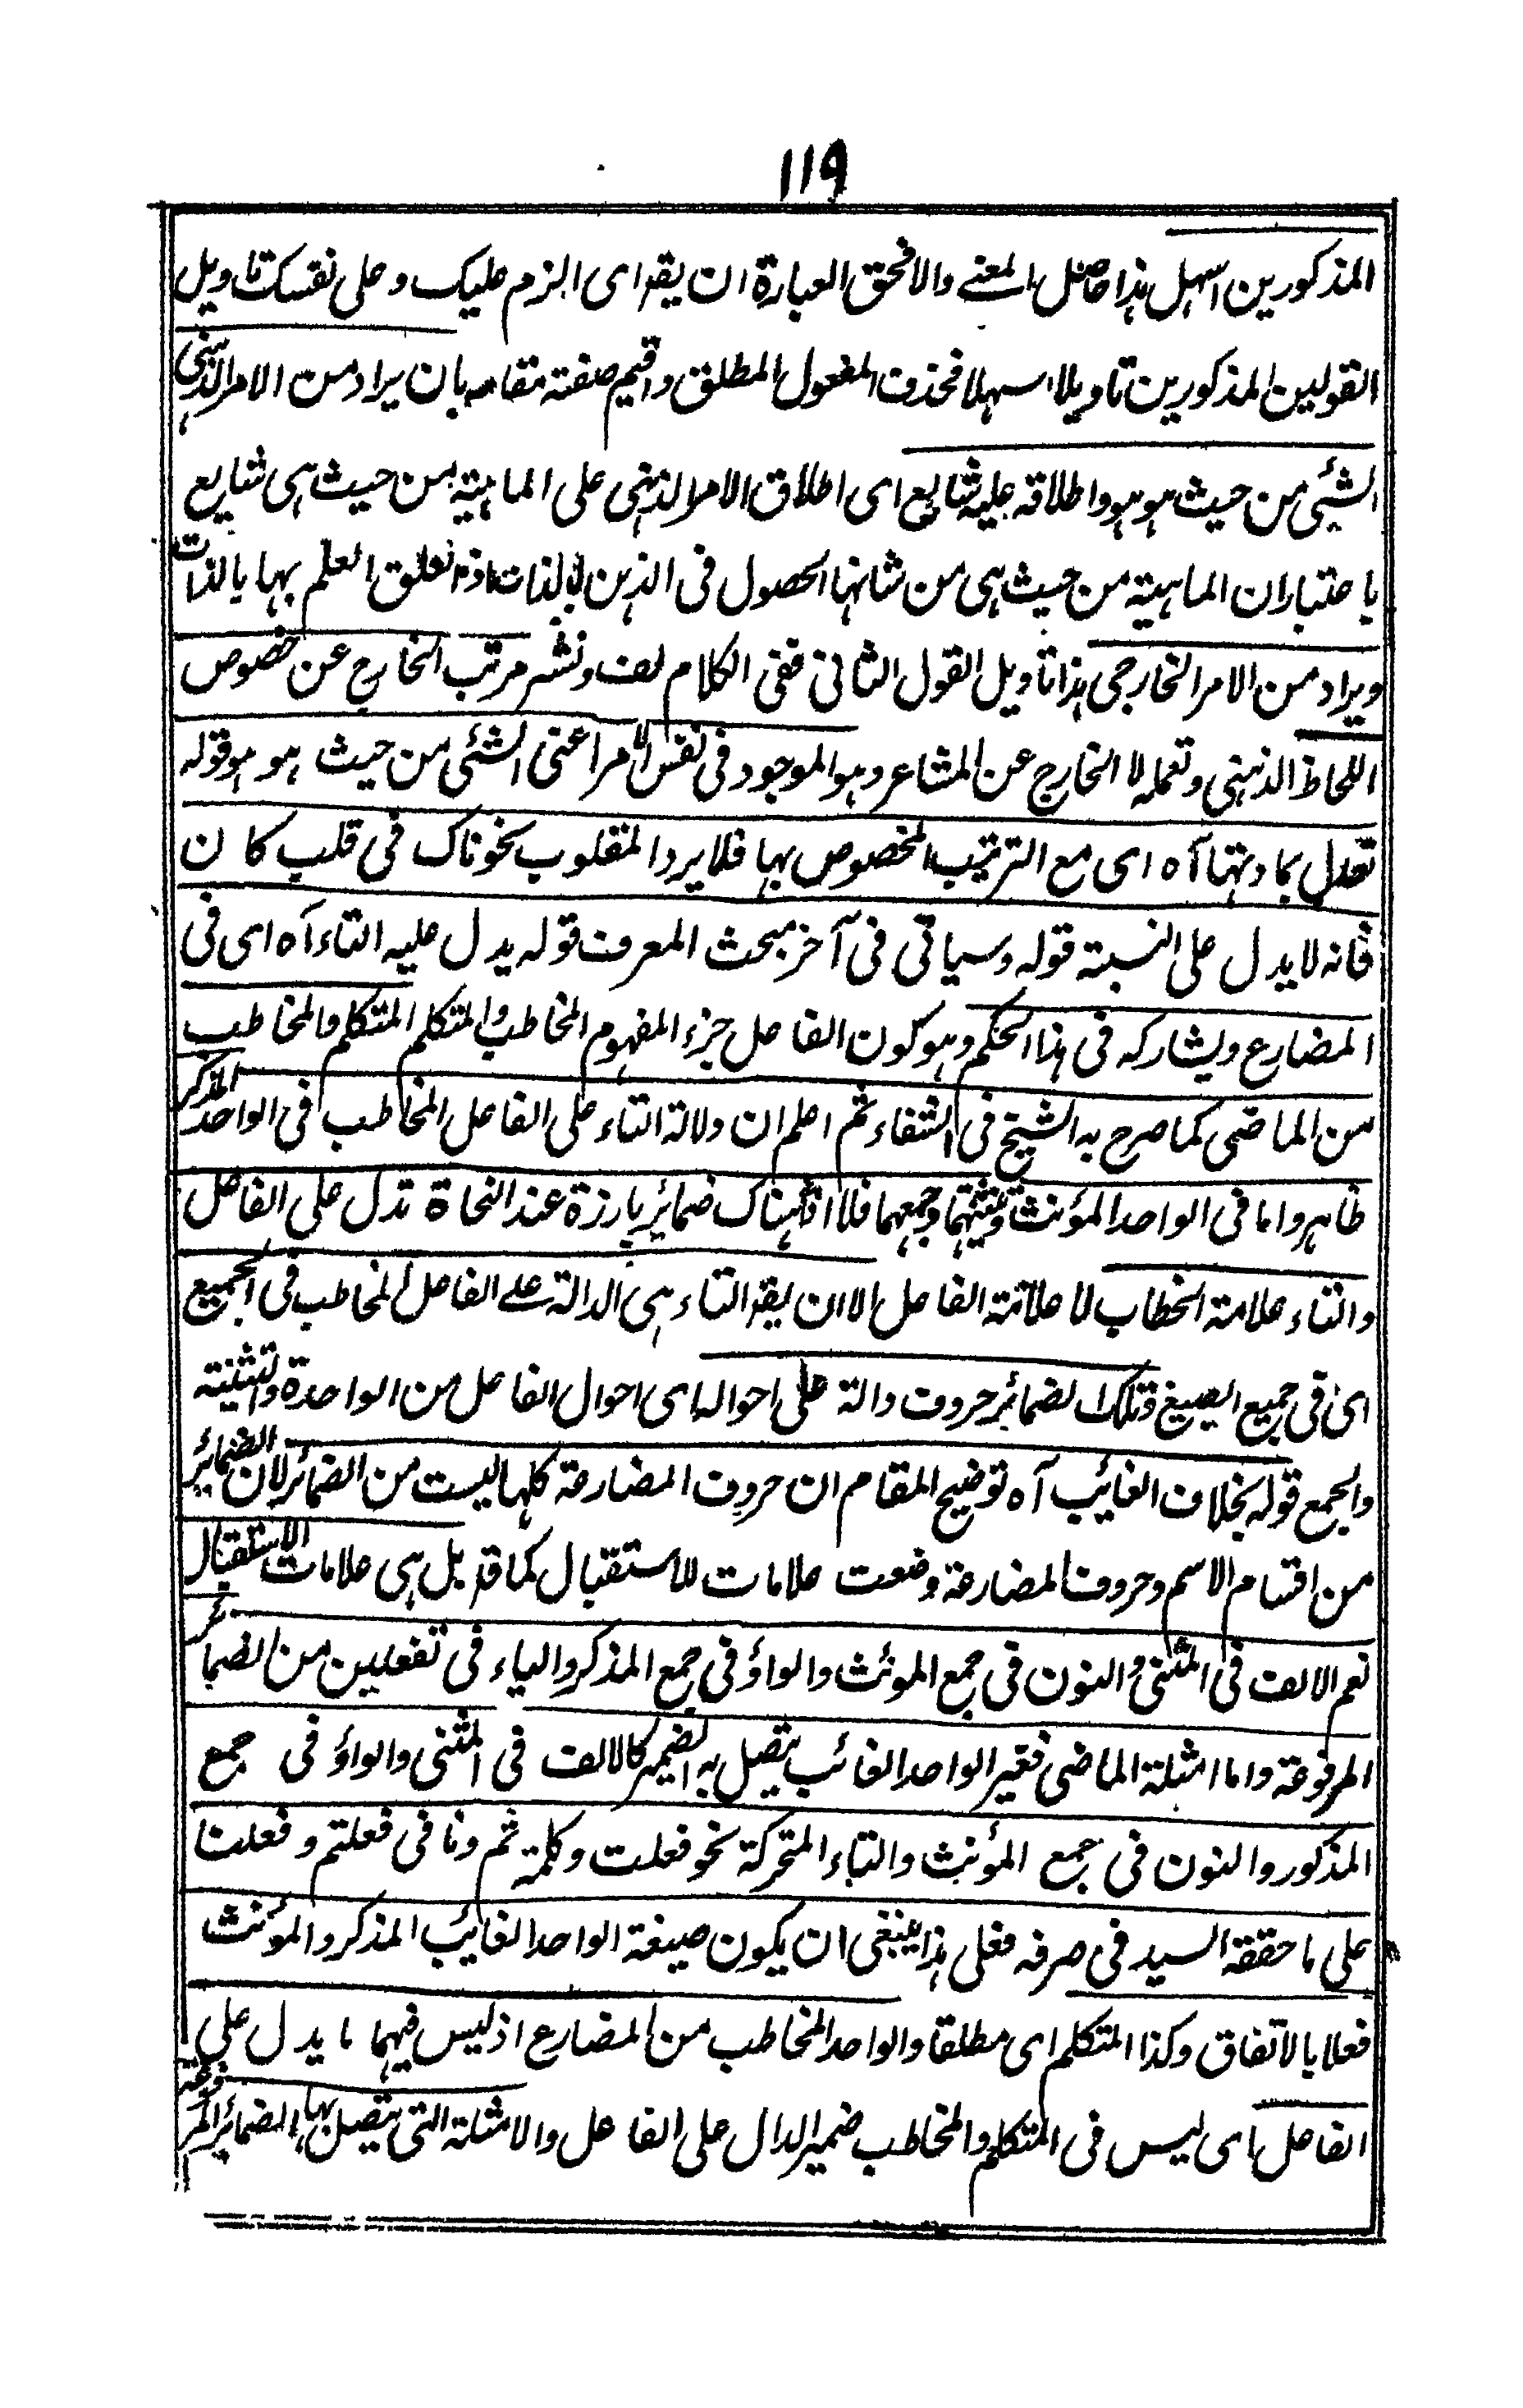 ١١٩
المذكورين اسهل هذا حاصل المعنے والا فحق العبارة ان يقم اى الزم عليك وعلى نفسك تاويل
القولين المذكورين تاويلا اسهلا فحذف المفعول المطلق واقيم صفته مقامه بان يراد من الامر الذهنى
الشئى من حيث هو هو واطلاقه عليه شايع اى اطلاق الامر الذهنى على الماهية من حيث هى شايع
باعتبار ان الماهية من حيث هى من شانها الحصول فى الذهن بالذات اذ تعلق العلم بها بالذات
ويراد من الامر الخارجى هذا تاويل القول الثانى ففى الكلام لف ونشر مرتب الخارج عن خصوص
اللحاظ الذهنى وتعمله لا الخارج عن المشاعر وهو الموجود فى نفس الامر اعنى الشئى من حيث هو هو قوله
تعدل بمادتها آه اى مع الترتيب المخصوص بها فلا يرد المقلوب نحو ناك فى قلب كان
فانه لا يدل على النسبة قوله وسياتى فى آخر مبحث المعرف قوله يدل عليه التاء آه اى فى
المضارع ويشاركه فى هذا الحكم وهو كون الفاعل جزء المفهوم المخاطب والمتكلم المتكلم والمخاطب
من الماضى كما صرح به الشيخ فى الشفاء ثم اعلم ان دلالة التاء على الفاعل المخاطب فى الواحد المذكر
ظاهر واما فى الواحد المؤنث وتثنيتهما وجمعهما فلا اذ هناك ضمائر بارزة عند النحاة تدل على الفاعل
والتاء علامة الخطاب لا علامة الفاعل الا ان يقم التاء هى الدالة علے الفاعل المخاطب فى الجميع
اى فى جميع الصيغ وتلك الضمائر حروف دالة على احواله اى احوال الفاعل من الواحدة والتثنية
والجمع قوله بخلاف الغائيب آه توضيح المقام ان حروف المضارعة كلها ليست من الضمائر لان الضمائر
من اقسام الاسم وحروف المضارعة وضعت علامات للاستقبال كما قد بل هى علامات الاستقبال
نعم الالف فى المثنى والنون فى جمع المؤنث والواؤ فى جمع المذكر والياء فى تفعلين من الضمائر
المرفوعة واما امثلة الماضى فغير الواحد الغائب يتصل به الضمير كالالف فى المثنى والواؤ فى جمع
المذكور والنون فى جمع المؤنث والتاء المتحركة نحو فعلت وكلمة تم ونا فى فعلتم وفعلنا
على ما حققه السيد فى صرفه فعلى هذا ينبغى ان يكون صيغة الواحد الغائيب المذكر والمؤنث
فعلا بالاتفاق وكذا المتكلم اى مطلقا والواحد المخاطب من المضارع اذ ليس فيهما ما يدل على
الفاعل اى ليس فى المتكلم والمخاطب ضمير الدال على الفاعل والامثلة التى يتصل بها الضمائر المرفوعة